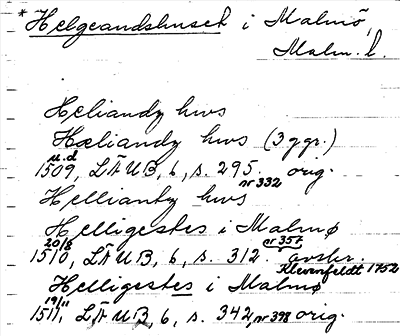 * Helgeandshuset i Malmö,
Malm. l.
Heliandz hws
Hæliandz hws (3 ggr.)
u.d
1509, LÄUB, 6, s. 295. nr 332 orig.
Hellianty hws
Helligestes i Malmø
20/8
1510, LÄUB, 6, s. 312. nr 357 avskr.
Klevenfeldt 1752
Helligestes i Malmø
19/11
1511, LÄUB, 6, s. 342, nr 398 orig.